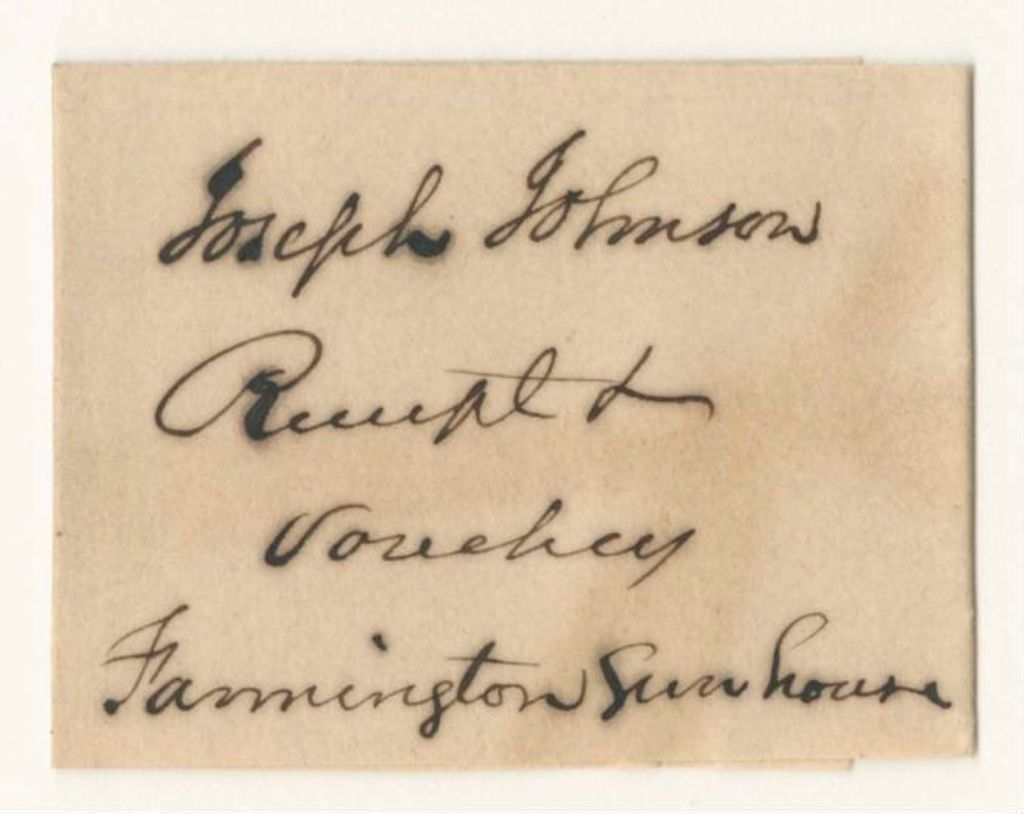 Joseph Johnson
Receipt &
Vouchers
Farmington Gun house